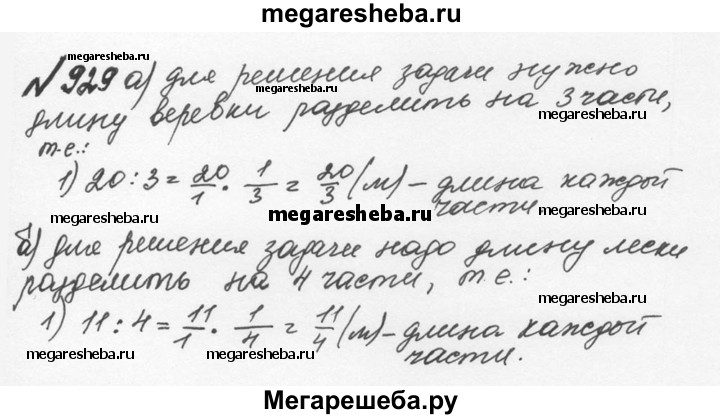 megaresheba.ru
№929 а) для решения задачи нужно
megaresheba.ru
megaresheba.ru
длину веревки разделить на 3 части,
megaresheba.ru
т.е.:
1) 20 : 3 = 20/1 · 1/3 = 20/3 (м) – длина каждой
части.
megaresheba.ru
megaresheba.ru
megaresheba.ru
б) для решения задачи надо длину лески
разделить на 4 части, т.е.:
1) 11 : 4 = 11/1 · 1/4 = 11/4 (м) – длина каждой
части.
megaresheba.ru
megaresheba.ru
megaresheba.ru
Мегарешеба.ру